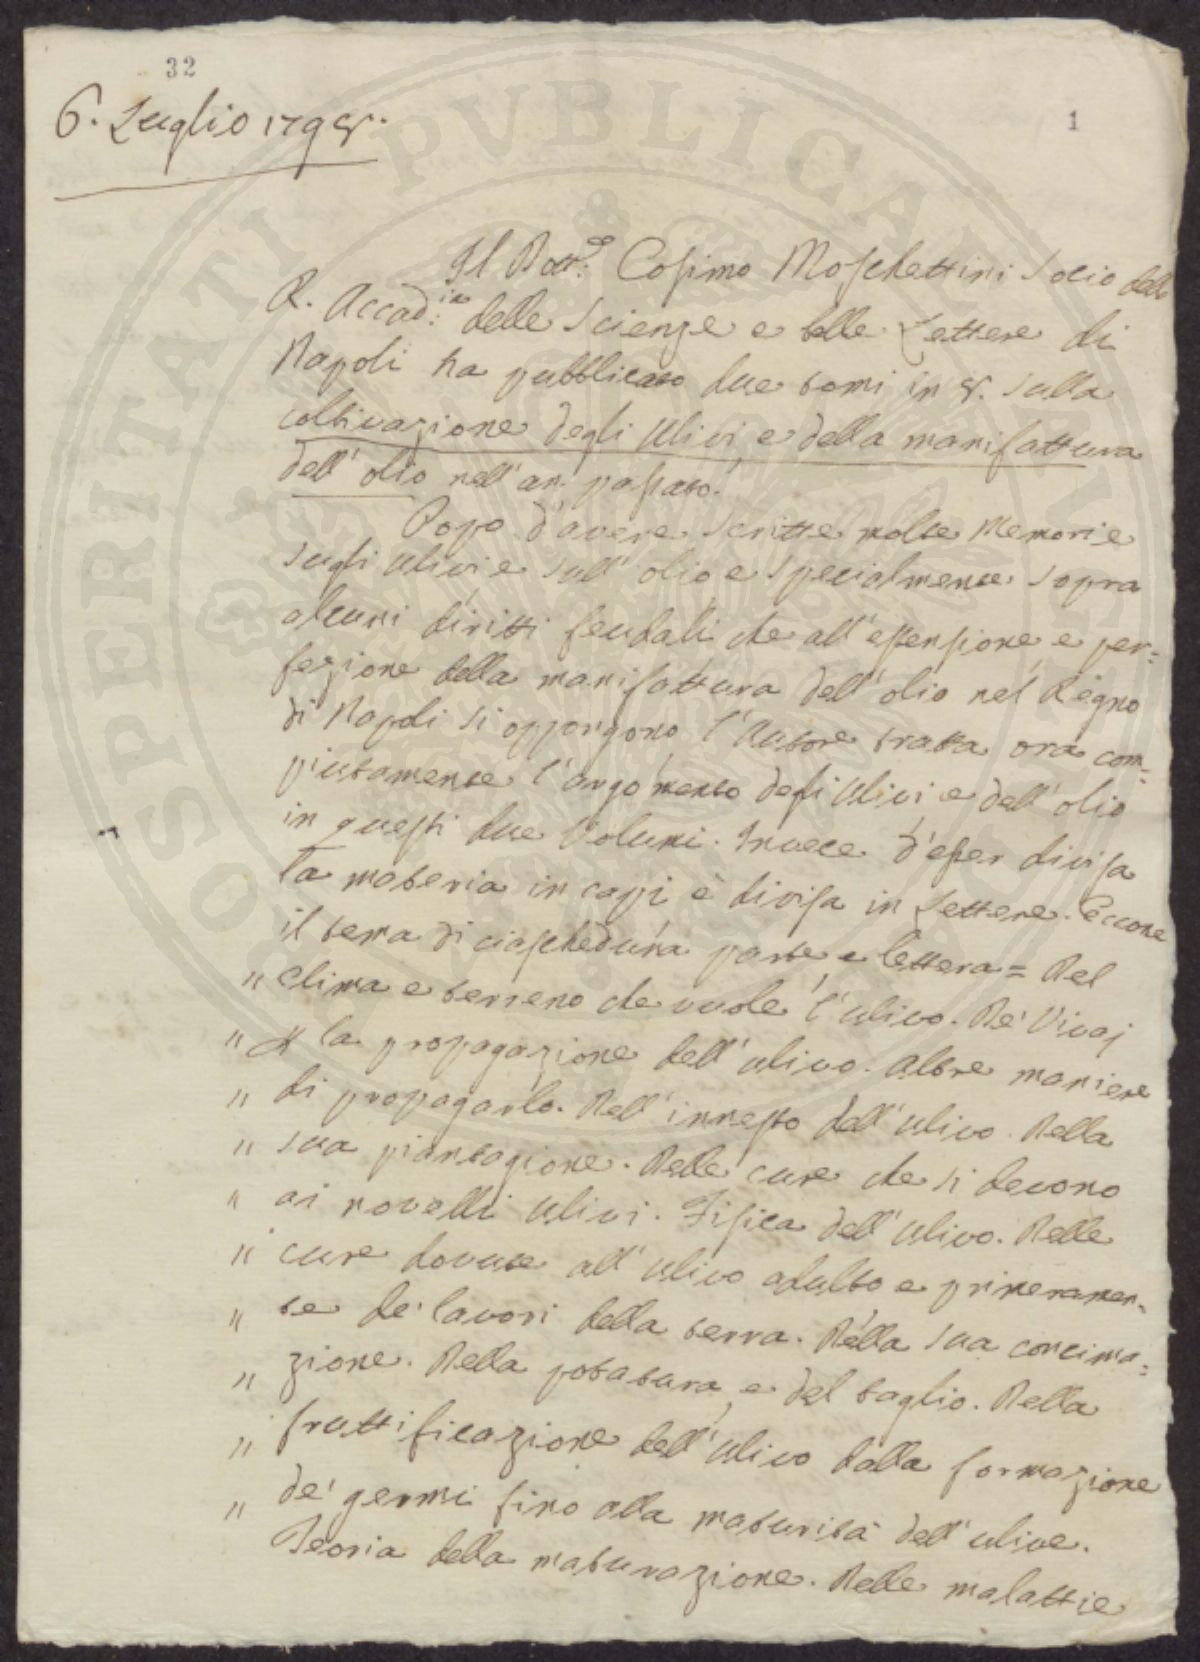 32
6. Luglio 1795.
1
Il Dott.e Cosimo Moschettini Socio della
R. Accad:ia delle Scienze e belle Lettere di
Napoli ha pubblicato due tomi in 8. sulla
coltivazione degli Ulivi e della manifattura
dell' olio nell' an. passato.
Dopo d'avere scritte molte Memorie
sugli Ulivi e sull' olio e specialmente sopra
alcuni diritti feudali che all' estensione e per=
fezione della manifattura dell' olio nel Regno
di Napoli si oppongono l'Autore tratta ora com=
piutamente l'argomento degli Ulivi e dell' olio
in questi due Volumi. Invece d'esser divisa
la materia in capi è divisa in Lettere. Eccone
il tema di ciascheduna parte e lettera = Del
" Clima e terreno che vuole l'ulivo. De' Vivaj
" la propagazione dell' ulivo. Altre maniere
" di propagarlo. Dell' innesto dell' ulivo. Della
" sua piantagione. Delle cure che si devono
" ai novelli ulivi. Fisica dell' ulivo. Delle
" cure dovute all' ulivo adulto e primeramen=
" te de' lavori della terra. Della sua concima=
" zione. Della potatura e del taglio. Della
" fruttificazione dell' ulivo dalla formazione
" de' germi fino alla maturità dell' ulive.
Teoria della maturazione. Delle malattie
SPERITATI PVBLICAE